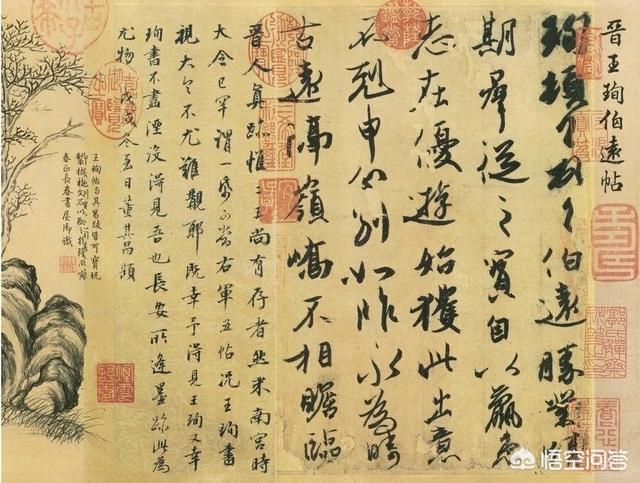 晉王珣伯遠帖
珣頓首頓首伯遠勝業情
期群從之寶自以羸患
志在優遊始獲此出意
不剋申分別如昨永為疇
古遠隔嶺嶠不相瞻臨
晉人真跡惟二王尚有存者然米南宮時
大令已罕謂一紙可當右軍五帖況王珣書
視大令不尤難覯耶既幸予得見王珣又幸
珣書不盡湮沒得見吾也長安所逢墨跡此為
尤物戊戌冬至日董其昌題
王珣帖與其昌跋皆可寶玩
春正長春書屋御識
悟空问答